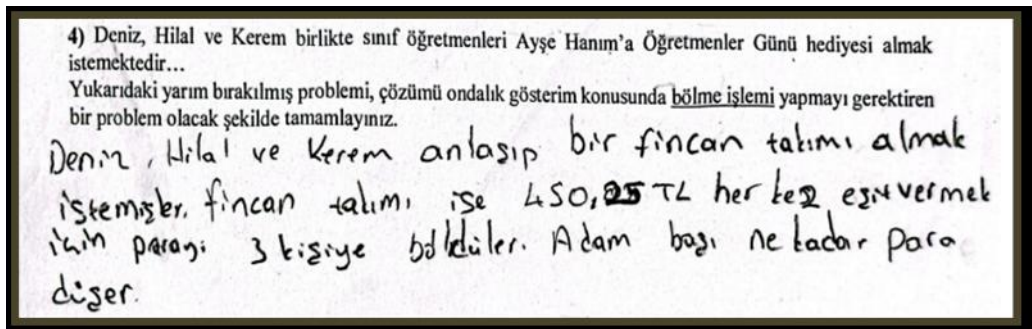 4) Deniz, Hilal ve Kerem birlikte sınıf öğretmenleri Ayşe Hanım'a Öğretmenler Günü hediyesi almak
istemektedir…
Yukarıdaki yarım bırakılmış problemi, çözümü ondalık gösterim konusunda bölme işlemi yapmayı gerektiren
bir problem olacak şekilde tamamlayınız.
Deniz, Hilal ve Kerem anlaşıp bir fincan takımı almak
istemişler. fincan takımı ise 450,25 TL her kez eşit vermek
için parayı 3 kişiye böldüler. Adam başı ne kadar para
düşer.